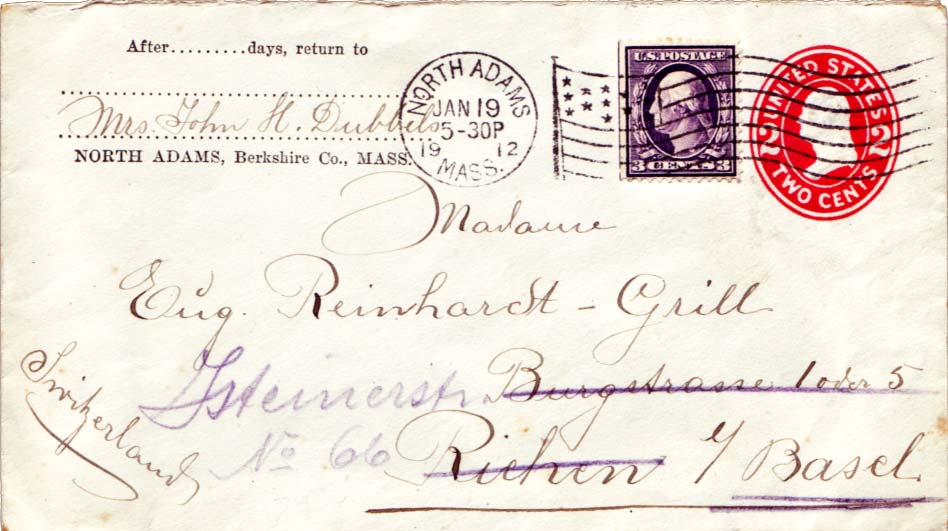 After.........days, return to
Mrs. John H. Dubbels
NORTH ADAMS, Berkshire Co., MASS.
NORTH ADAMS
JAN 19
5-30P
19 12
MASS.
U.S. POSTAGE
3 CENTS 3
UNITED STATES
2 2
TWO CENTS
Madame
Eug. Reinhardt - Grill
Burgstrasse 1 oder 5
Isteinerstr
No 66
Riehen / Basel
Switzerland